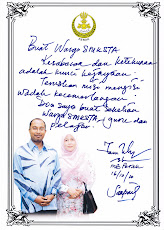 Buat Warga SMKSTA
Kesabaran dan ketekunan
adalah kunci kejayaan.
Teruskan misi mengisi
wadah kecemerlangan
Doa saya buat sekalian
Warga SMKSTA, guru dan
pelajar.
MB PERAK